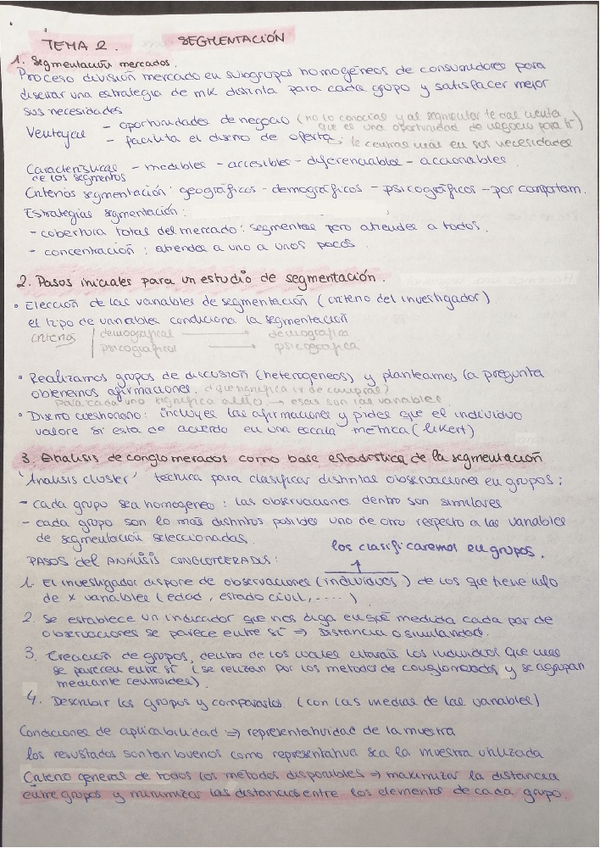 TEMA 2. SEGMENTACIÓN
1. Segmentación mercados.
Proceso división mercado en subgrupos homogéneos de consumidores para
diseñar una estrategia de mk distinta para cada grupo y satisfacer mejor
sus necesidades
Ventajas - oportunidades de negocio (no lo conocías y al segmentar te das cuenta
que es una oportunidad de negocio para ti)
- facilita el diseño de oferta; te centras más en sus necesidades
Características - medibles - accesibles - diferenciables - accionables
de los segmentos
Criterios segmentación: geográficos - demográficos - psicográficos - por comportam.
Estrategias segmentación:
- cobertura total del mercado: segmentas pero atiendes a todos.
- concentración: atiendes a uno o unos pocos.
2. Pasos iniciales para un estudio de segmentación.
• Elección de las variables de segmentación (criterio del investigador)
el tipo de variables condiciona la segmentación
criterios demográficas → demográfica
psicográficas → psicográfica
• Realizamos grupos de discusión (heterogeneos) y planteamos la pregunta
obtenemos afirmaciones. d que significa ir de compras)
para cada uno significa algo → esas son las variables
• Diseño cuestionario: incluyes las afirmaciones y pides que el individuo
valore si esta de acuerdo en una escala métrica (likert)
3. Análisis de conglomerados como base estadística de la segmentación
'Análisis cluster' técnica para clasificar distintas observaciones en grupos;
- cada grupo sea homogeneo: las observaciones dentro son similares
- cada grupo son lo más distintos posibles uno de otro respecto a las variables
de segmentación seleccionadas.
los clasificaremos en grupos.
PASOS del ANÁLISIS CONGLOMERADOS:
1. El investigador dispone de observaciones (individuos) de los que tiene info
de x variables (edad, estado civil, ....)
2. Se establece un indicador que nos diga en qué medida cada par de
observaciones se parece entre sí ⇒ Distancia o similaridad.
3. Creación de grupos, dentro de los cuales estarán los individuos que más
se parecen entre sí (se realizan por los métodos de conglomerados y se agrupan
mediante centroides)
4. Describir los grupos y compararlos (con las medias de las variables)
Condiciones de aplicabilidad ⇒ representatividad de la muestra
los resultados son tan buenos como representativa sea la muestra utilizada
Criterio general de todos los métodos disponibles ⇒ maximizar la distancia
entre grupos y minimizar las distancias entre los elementos de cada grupo.